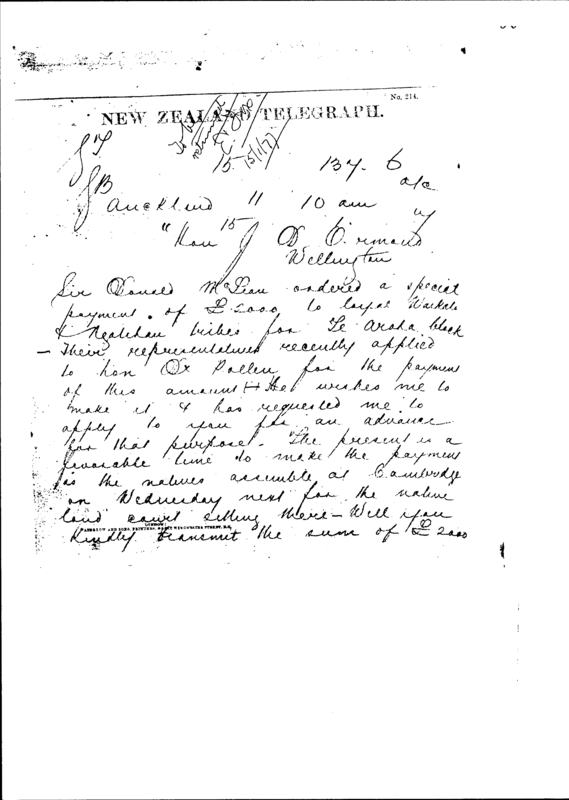 No. 214.
NEW ZEALAND TELEGRAPH.
returned
15/1/77
15
134. 6
a/c
Auckland 11 10 am
"Hon 15 J D Ormond
Wellington
Sir Donald McLean ordered a special
payment of £2000 to loyal Waikato
& Ngatehau tribes for Te Aroha block
- Their representatives recently applied
to hon Dr Pollen for the payment
of this amount He wishes me to
make it & has requested me to
apply to you for an advance
for that purpose - The present is a
favorable time to make the payment
as the natives assemble at Cambridge
on Wednesday next for the native
land court sitting there - Will you
kindly transmit the sum of £2000